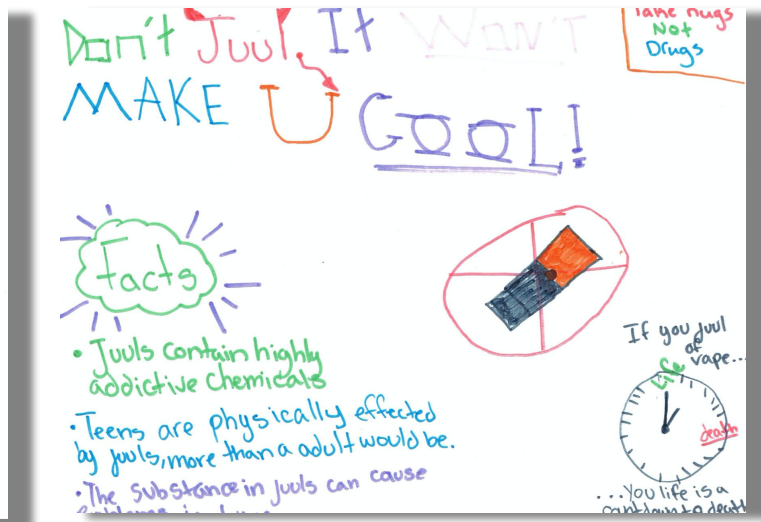 Don't Juul, It Won't
MAKE U COOL!
Take Hugs
Not
Drugs
Facts
• Juuls contain highly
addictive chemicals
• Teens are physically effected
by juuls, more than a adult would be.
• The substance in juuls can cause
If you Juul
of
vape...
Life
death
...You life is a
countdown to death